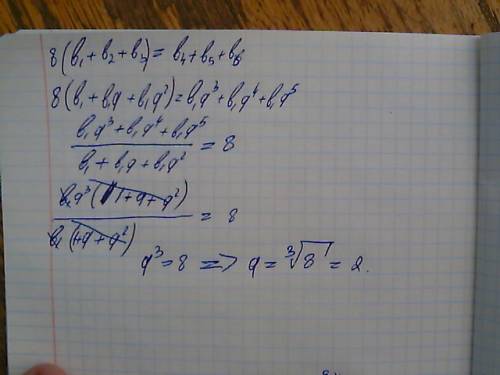 8(b₁+b₂+b₃)=b₄+b₅+b₆
8(b₁+b₁q+b₁q²)=b₁q³+b₁q⁴+b₁q⁵
b₁q³+b₁q⁴+b₁q⁵
b₁+b₁q+b₁q² = 8
b₁q³(1+q+q²)
b₁(1+q+q²) = 8
q³=8 => q=∛8=2.